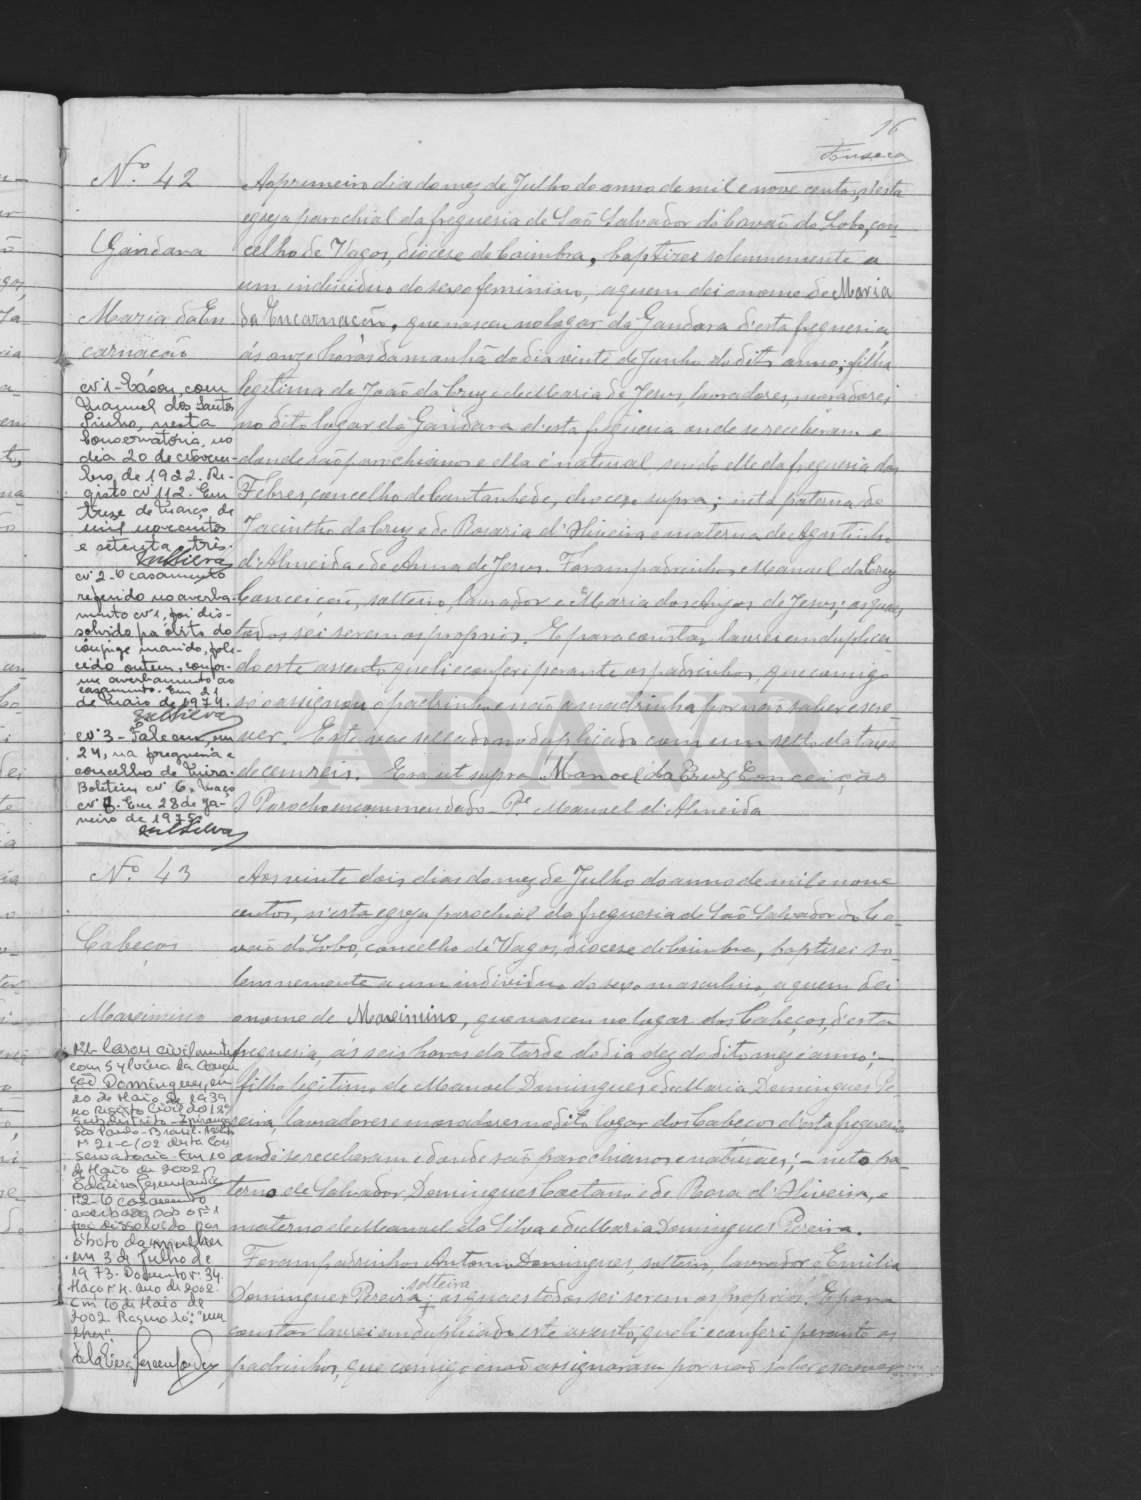 16
Fonseca
Nº 42
Gandara
Maria da En
carnação
Nº 1 - Casou com
Manuel dos Santos
Pinho, nesta
Conservatória, no
dia 20 de
bro, de 1922. Re-
gisto nº 112. Em
treze de Março de
mil novecentos
e setenta e três.
Nº 2 - O casamento
referido no averba-
mento nº 1, foi dis-
solvido por óbito do
cônjuge marido, fale-
cido ontem, confor-
me averbamento ao
casamento. Em 21
de Maio de 1974.
Nº 3 - Faleceu, em
24, na freguesia e
concelho de Mira.
Boletim nº 6, Maço
nº 1. Em 28 de Ja-
neiro de 1975.
Ao primeiro dia do mez de Julho do anno de mil e nove centos, n'esta
egreja parochial da freguesia de São Salvador do Covão do Lobo, con-
celho de Vagos, diocese de Coimbra, baptizei solemnemente a
um individuo do sexo feminino, a quem dei o nome de Maria
da Encarnação, que nasceu no lugar da Gandara d'esta freguesia
ás onze horas da manhã do dia vinte de Junho do dito anno; filha
legitima de João da Cruz e de Maria de Jesus, lavradores, moradores
no dito lugar da Gandara d'esta freguesia onde se receberam e
donde são parochianos e ella é natural, sendo elle da freguesia das
Febres, concelho de Cantanhede, diocese supra; neta paterna de
Jacintho da Cruz e de Rosaria d'Oliveira e materna de Agostinho
d'Almeida e de Anna de Jesus. Foram padrinhos Manuel da Cruz
Conceição, solteiro, lavrador e Maria dos Anjos de Jesus; os quaes
todos sei serem os proprios. E para constar lavrei em duplica-
do este assento que li e conferi perante os padrinhos, que comigo
só o assignou o padrinho e não a madrinha por não saber escre-
ver. Este vae sellado no duplicado com um sello da taxa
de cem reis. Era ut supra. Manoel da Cruz Conceição
O Parocho encommendado - Pe. Manuel d'Almeida
Nº 43
Cabeços
Maximino
Nº1- Casou civilmente
com Sylvina da Concei
ção Domingues, em
20 de Maio de 1939
no Registo Civil do 18º
Subdistrito - Ipiranga
São Paulo - Brasil. Assento
nº 21-C/02 desta Con
servatória. Em 10
de Maio de 2002
Nº2- O casamento
averbado sob o nº 1
foi dissolvido por
óbito da mulher
em 3 de Julho de
1973. Documento nº 34.
Maço nº 4. ano de 2002.
Em 10 de Maio de
2002. Raspado: "mu
lher".
Aos vinte dois dias do mez de Julho do anno de mil e nove
centos, n'esta egreja parochial da freguesia de São Salvador do Co-
vão do Lobo, concelho de Vagos, diocese de Coimbra, baptisei so-
lemnemente a um individuo do sexo masculino, a quem dei
o nome de Maximino, que nasceu no lugar dos Cabeços, d'esta
freguesia, ás seis horas da tarde do dia dez do dito mez e anno; -
filho legitimo de Manoel Domingues e de Maria Domingues Pe-
reira, lavradores e moradores no dito lugar dos Cabeços d'esta freguesia
onde se receberam e donde são parochianos e naturaes; - neto pa-
terno de Salvador Domingues Caetano e de Rosa d'Oliveira, e
materno de Manuel da Silva e de Maria Domingues Pereira.
Foram padrinhos Antonio Domingues, solteiro, lavrador e Emilia
Domingues Pereira, solteira; os quaes todos sei serem os proprios. E para
constar lavrei em duplicado este assento, que li e conferi perante os
padrinhos, que comigo não assignaram por não saber escrever
ADAVR